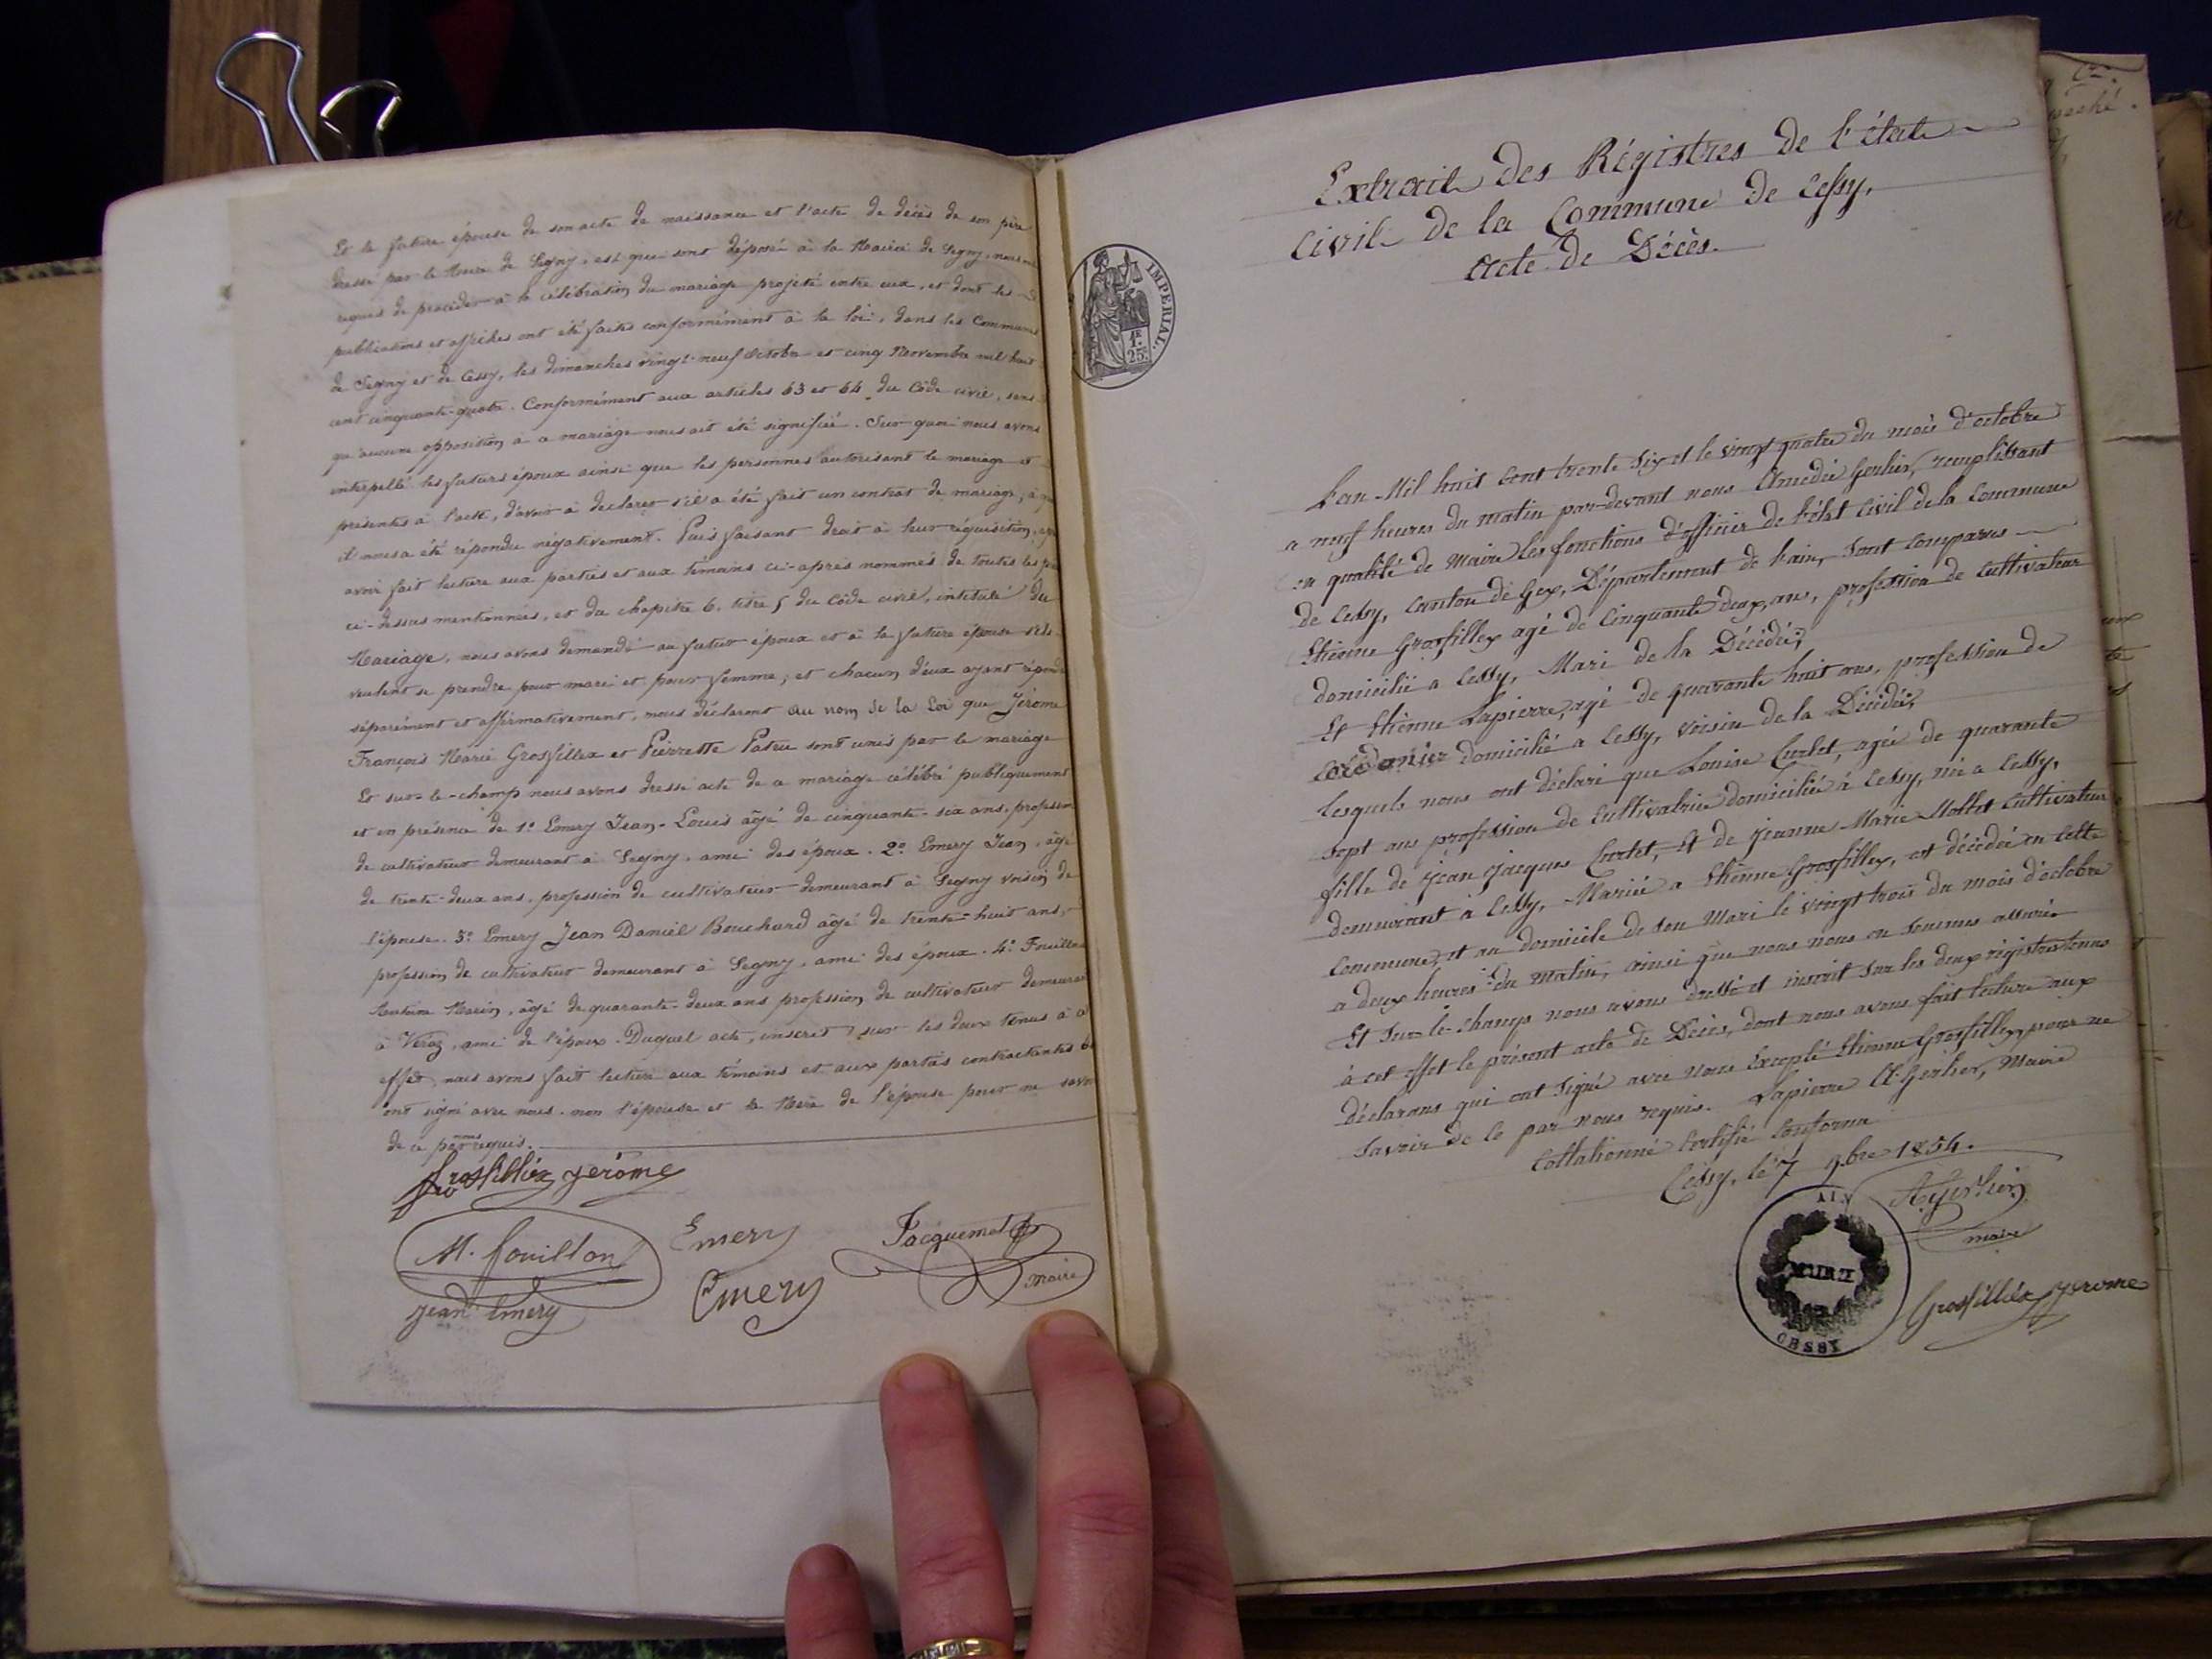 Et la future épouse de son acte de naissance et l'acte de décès de son père
dressé par le Maire de Segny, est qui sont déposé à la Mairie de Segny, nous
requis de procéder à la célébration du mariage projeté entre eux, et dont les
publications et affiches ont été faites conformément à la loi, dans les Communes
de Segny et de Cessy, les dimanches vingt-neuf Octobre et cinq Novembre mil huit
cent cinquante-quatre. Conformément aux articles 63 et 64 du Côde civil, sans
qu'aucune opposition à ce mariage nous ait été signifiée. Sur quoi nous avons
interpellé les futurs époux ainsi que les personnes autorisant le mariage et
présentes à l'acte, d'avoir à déclarer s'il a été fait un contrat de mariage, à
il nous a été répondu négativement. Puis faisant droit à leur réquisition,
avoir fait lecture aux parties et aux témoins ci-après nommés de toutes les
ci-dessus mentionnées, et du chapitre 6. titre 5 du Côde civil, intitulé du
Mariage, nous avons demandé au futur époux et à la future épouse s'ils
veulent se prendre pour mari et pour femme, et chacun d'eux ayant répondu
séparément et affirmativement, nous déclarons au nom de la Loi que Jérome
François Marie Grosfillex et Pierrette Patru sont unis par le mariage
Et sur-le-champ nous avons dressé acte de ce mariage célébré publiquement
et en présence de 1.o Emery Jean-Louis âgé de cinquante-six ans, profession
de cultivateur demeurant à Segny, ami des époux. 2.o Emery Jean, âgé
de trente-deux ans, profession de cultivateur demeurant à Segny voisin de
l'épouse. 3.o Emery Jean Daniel Bouchard âgé de trente-huit ans,
profession de cultivateur demeurant à Segny, ami des époux. 4.o Fouillon
Marin, âgé de quarante-deux ans profession de cultivateur demeurant
à Véraz, ami de l'époux. Duquel acte, inscrit sur les deux tenus à cet
effet, nous avons fait lecture aux témoins et aux parties contractantes
ont signé avec nous, non l'épouse et la Mère de l'épouse pour ne savoir
de ce par nous requis.
Grosfilléx Jérôme
M. fouillon Emery Jacquemet
maire
Jean Emery Emery
Extrait des Régistres de l'état
Civil de la Commune de Cessy,
Acte de Décès.
IMPERIAL.
1F.
25c.
L'an Mil huit Cent trente six et le vingt quatre du mois d'octobre
a neuf heures du matin par-devant nous Amedée Gerlier, remplissant
en qualité de Maire les fonctions d'officier de l'état Civil de la Commune
de Cessy, Canton de Gex, Département de l'ain, sont Comparus
Etienne Grosfillex agé de Cinquante deux, ans, profession de Cultivateur
domicilié a Cessy, Mari de la Décédée,
Et Etienne Lapierre, agé de quarante huit ans, profession de
Cordonier domicilié a Cessy, voisin de la Décédée,
lesquels nous ont déclaré que Louise Curlet, agée de quarante
sept ans profession de Cultivatrice domiciliée à Cessy, née a Cessy,
fille de Jean Jacques Curlet, Et de Jeanne Marie Mottet Cultivateurs
demeurant à Cessy, Mariée a Etienne Grosfillex, est décédée en Cette
Commune, et au domicile de son Mari le vingt trois du mois d'octobre
a deux heures du matin, ainsi que nous nous en sommes assurés
Et Sur-le-Champ nous avons dressé et inscrit sur les deux régistres tenus
à cet effet le présent acte de Décès, dont nous avons fait lecture aux
déclarans qui ont signé avec nous Excepté Etienne Grosfillex, pour ne
Savoir de ce par nous requis. Lapierre A. Gerlier, Maire
Collationné Certifié Conforme
Cessy, le 7 9.bre 1854.
A Gerlier
maire
CESSY
Grosfilléx Jerome